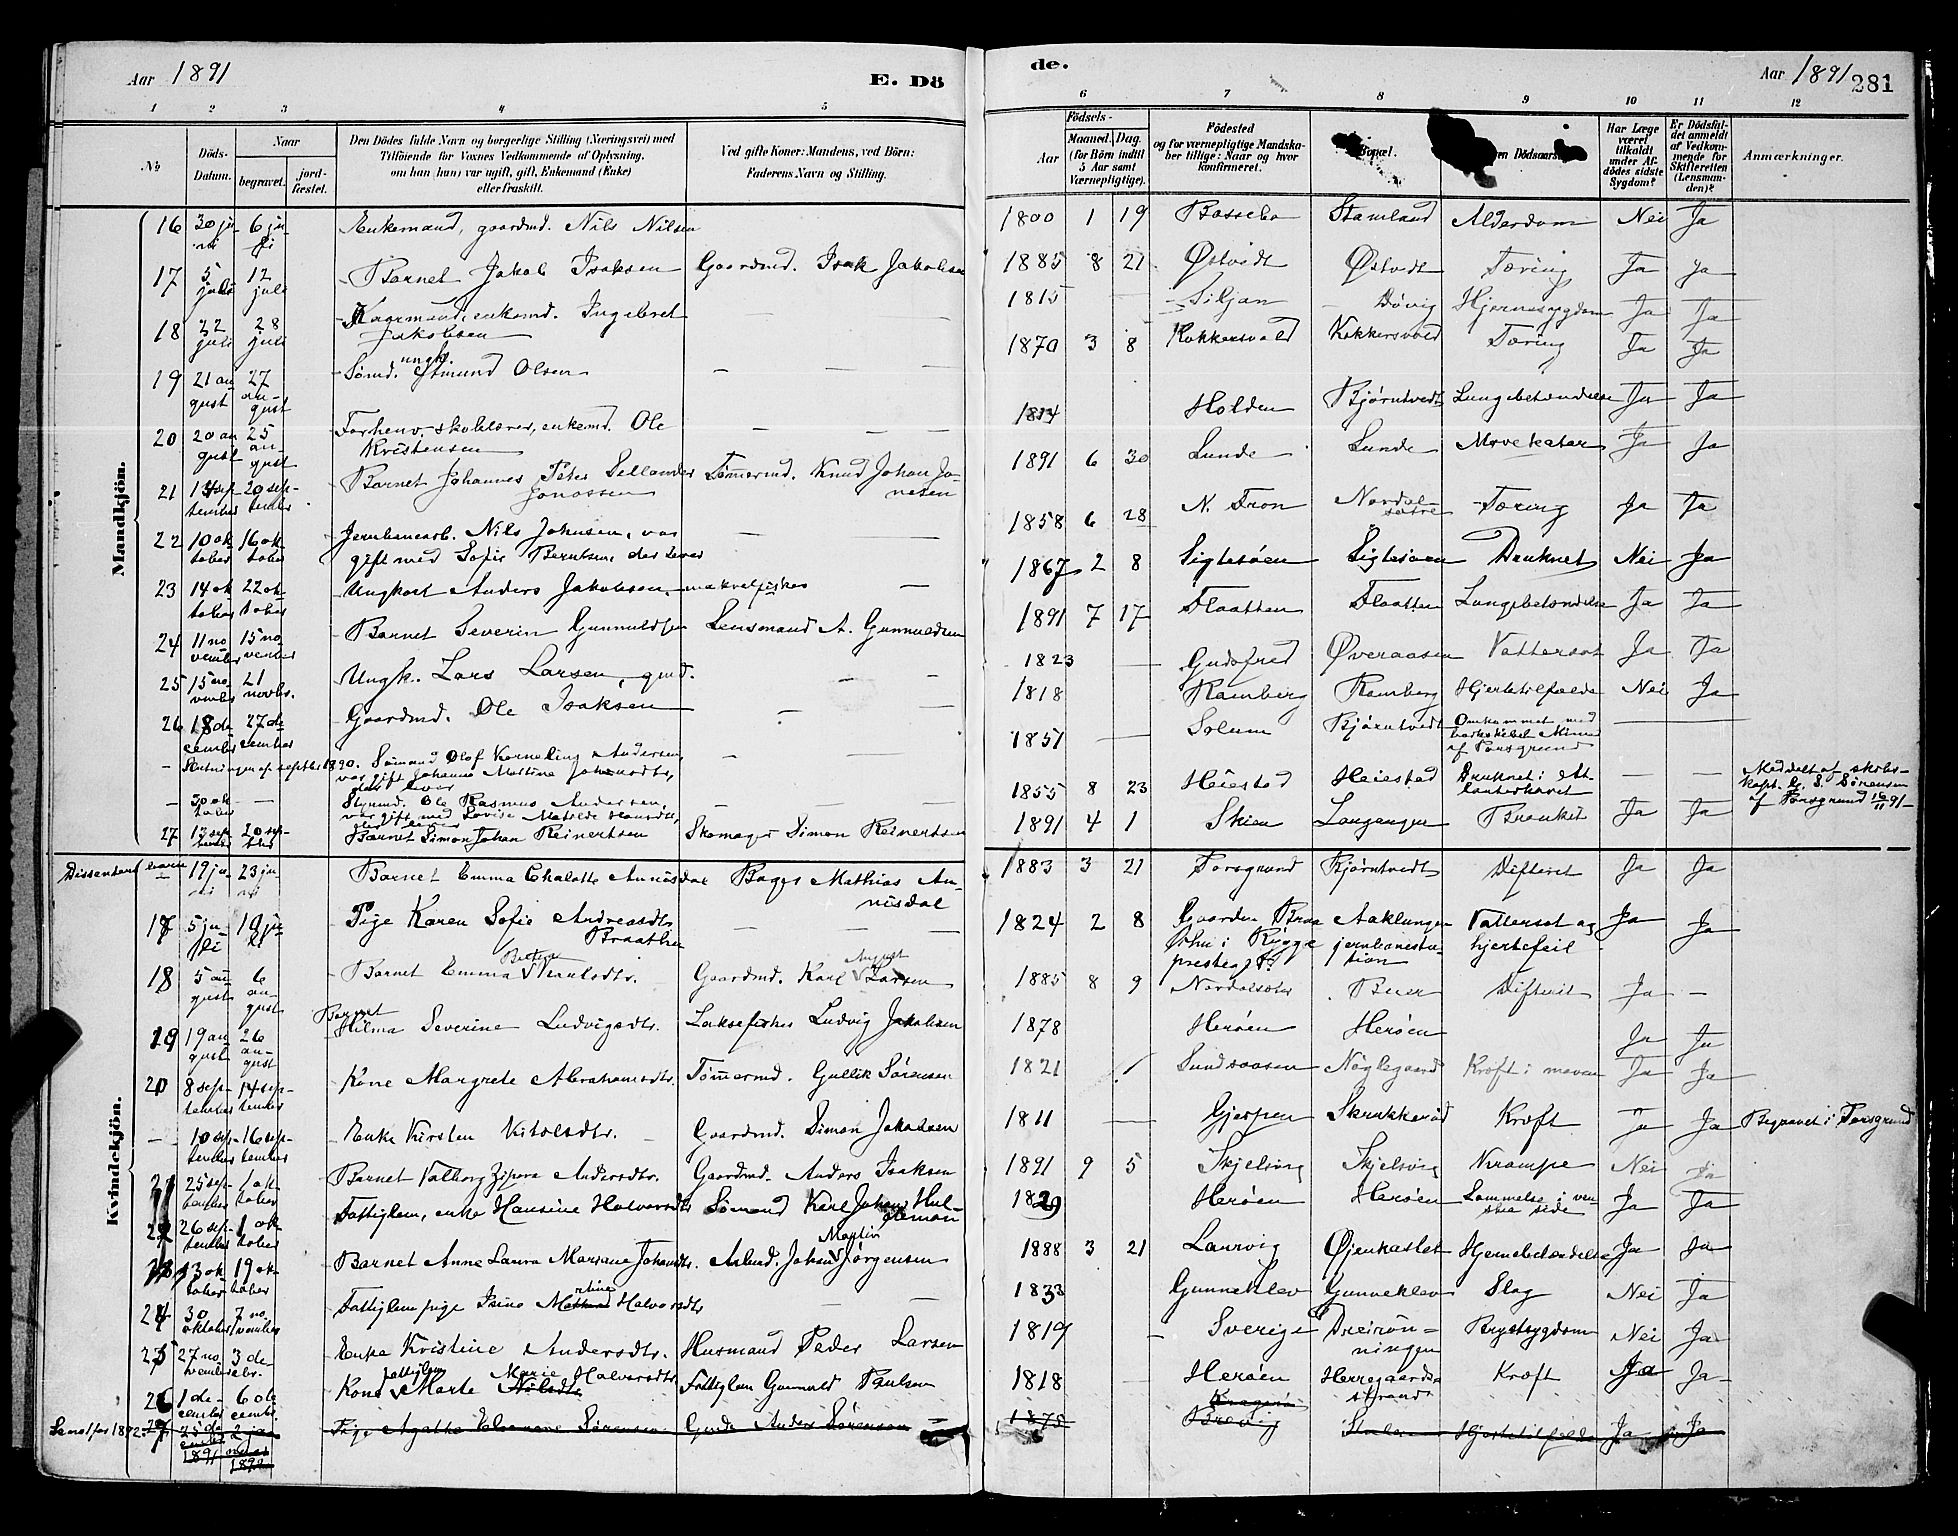 Aar 1891
E. Dö
de.
Aar 1891
281
1 2 3 4 5 6 7 8 9 10 11 12
No
Döds-Datum.
Naar
begravet.
jordfæstet.
Den Dödes fulde Navn og borgerlige Stilling (Næringsvei) med
Tilföiende for Voxnes Vedkommende af Oplysning,
om han (hun) var ugift, gift, Enkemand (Enke)
eller fraskilt.
Ved gifte Koner: Mandens, ved Börn:
Faderens Navn og Stilling.
Födsels-
Aar
Maaned. Dag.
(for Börn indtil
5 Aar samt
Værnepligtige).
Födested
og for værnepligtige Mandskaber tillige: Naar og hvor
konfirmeret.
Bopæl.
Har Læge
været
tilkaldt
under Afdödes sidste
Sygdom?
Er Dödsfaldet anmeldt
af Vedkommende for
Skifteretten
(Lensmanden)?
Anmærkninger.
Mandkjön.
16 30 juni 6 juli Enkemand, gaardmd. Nils Nilsen 1800 1 19 Bassebo Stamland Alderdom Nei Ja
17 5 juli 12 juli Barnet Jakob Isaksen Gaardmd. Isak Jakobsen 1885 8 21 Østvedt Østvedt Tæring Ja Ja
18 22 juli 28 juli enkemd. Ingebret Jakobsen — — 1815 — Siljan Døvig Hjernesygdom Ja Ja
19 21 august 27 august Sømd. ungk. Olsen — — — 1870 3 8 Kokkersvold Kokkersvold Tæring Ja Ja
20 20 august 25 august Forhenv. skolelærer, enkemd. Ole Kristensen — — — 1814 Holden Bjørntvedt Lungebetændelse Ja Ja
21 14 september 20 september Barnet Johannes Peter Sellander Jonassen Tømmermd. Knud Johan Jonesen 1891 6 30 Lunde Lunde Mavekatar Ja Ja
22 10 oktober 16 oktober Jernbanearb. Nils Johnsen, var
gift med Sofie Berntsen, der lever — — 1858 6 28 N. Fron Nordalsætre Tæring Ja Ja
23 14 oktober 22 oktober Ungkarl Anders Jakobsen, makrelfisker — 1867 2 8 Sigtesøen Sigtesøen Druknet Nei Ja
24 11 november 15 november Barnet Severin Gunnuldsen Lensmand A. Gunnuldsen 1891 7 17 Flaatten Flaatten Lungebetændelse Ja Ja
25 15 november 21 novbr. Ungk. Lars Larsen, gmd. — — 1823 — Gudsfred Øveraasen Vattersot Ja Ja
26 18 december 27 december Gaardmd. Ole Isaksen — — 1818 Ramberg Ramberg Hjertetilfælde Nei Ja
— Slutningen af septbr 1890. Sømand Olof Korneling Andersen,
var gift Johanne Martine Johansdtr,
der lever — — 1851 — Solum Bjørntvedt Omkommet med
barkskibet
af Porsgrund — —
— 30 oktober — Styrmd. Ole Rasmus Andersen,
var gift med Lovise Matilde Hansdtr,
der lever — — 1855 8 23 Heiestad Heiestad Druknet i Atlanterhavet — — Meddelt af skibskapt. G. S. Sörensen
af Porsgrund 16/11 91
27 17 september 20 september Barnet Simon Johan Reinertsen Skomager Simon Reinertsen 1891 4 1 Skien Langangen Bronkit Ja Ja
Kvindekjön.
Dissenters barn 19 juni 23 juni Barnet Emma Chalotte Annisdal Bager Mathias Annisdal 1883 3 21 Porsgrund Bjørntvedt Difterit Ja Ja
17 5 juli 10 juli Pige Karen Sofie Andreasdtr Braathen — — — 1824 2 8 Gaarden i Rygge
prestegj. Aaklungen jernbanestation Vattersot og hjertefeil Ja Ja
18 5 august 6 august Barnet Emma Karlsdtr. Gaardmd. Karl August Larsen 1885 8 9 Nordalsæter Buer Difterit Ja —
19 19 august 26 august Barnet Hilma Severine Ludvigsdtr. Laksefisker Ludvig Jakobsen 1878 Herøen Herøen Ja Ja
20 8 september 14 september Kone Margrete Abrahamsdtr. Tømmermd. Gullik Sørensen 1821 Sundsaasen Nøglegaard Kræft i maven Ja Ja
— 10 september 16 september Enke Kirsten Kitolsdtr. Gaardmd. Simon Jakobsen 1811 — Gjerpen Skrukkerød Kræft Ja Ja Begravet i Porsgrund
21 25 september 1 oktober Barnet Valborg Zipora Andersdtr. Gaardmd. Anders Isaksen 1891 9 5 Skjelsvig Skjelsvig Krampe Nei Ja
22 26 september 1 oktober Fattiglem, enke Hansine Halvorsdtr Sømand Karl Johan 1829 Herøen Herøen Lammelse i venstre side Ja Ja
23 13 oktober 19 oktober Barnet Anne Laura Mariane Johansdtr. Arbmd. Johan Martin Jørgensen 1888 3 21 Laurvig Øjenkastet Hjernebetændelse Ja Ja
24 30 oktober 7 november Fattiglem pige Halvorsdtr — — 1833 Gunneklev Gunneklev Slag Nei Ja
25 27 november 3 decbr. Enke Kristine Andersdtr. Husmand Peder Larsen 1819 — Sverige Dreirönningen Brystsygdom Nei Ja
26 1 december 6 decembr. Kone fattiglem Marte Nilsdtr Marie Halvorsdtr Fattiglem Gunnuld Paulsen 1818 — Herøen Herregaardsstrand Kræft Ja Ja
27 25 december 1891 2 januar 1892 Pige Agathe Sørensen Anders Sørensen — 1875 Kragerø Brevig Hjertetilfælde Ja Ja